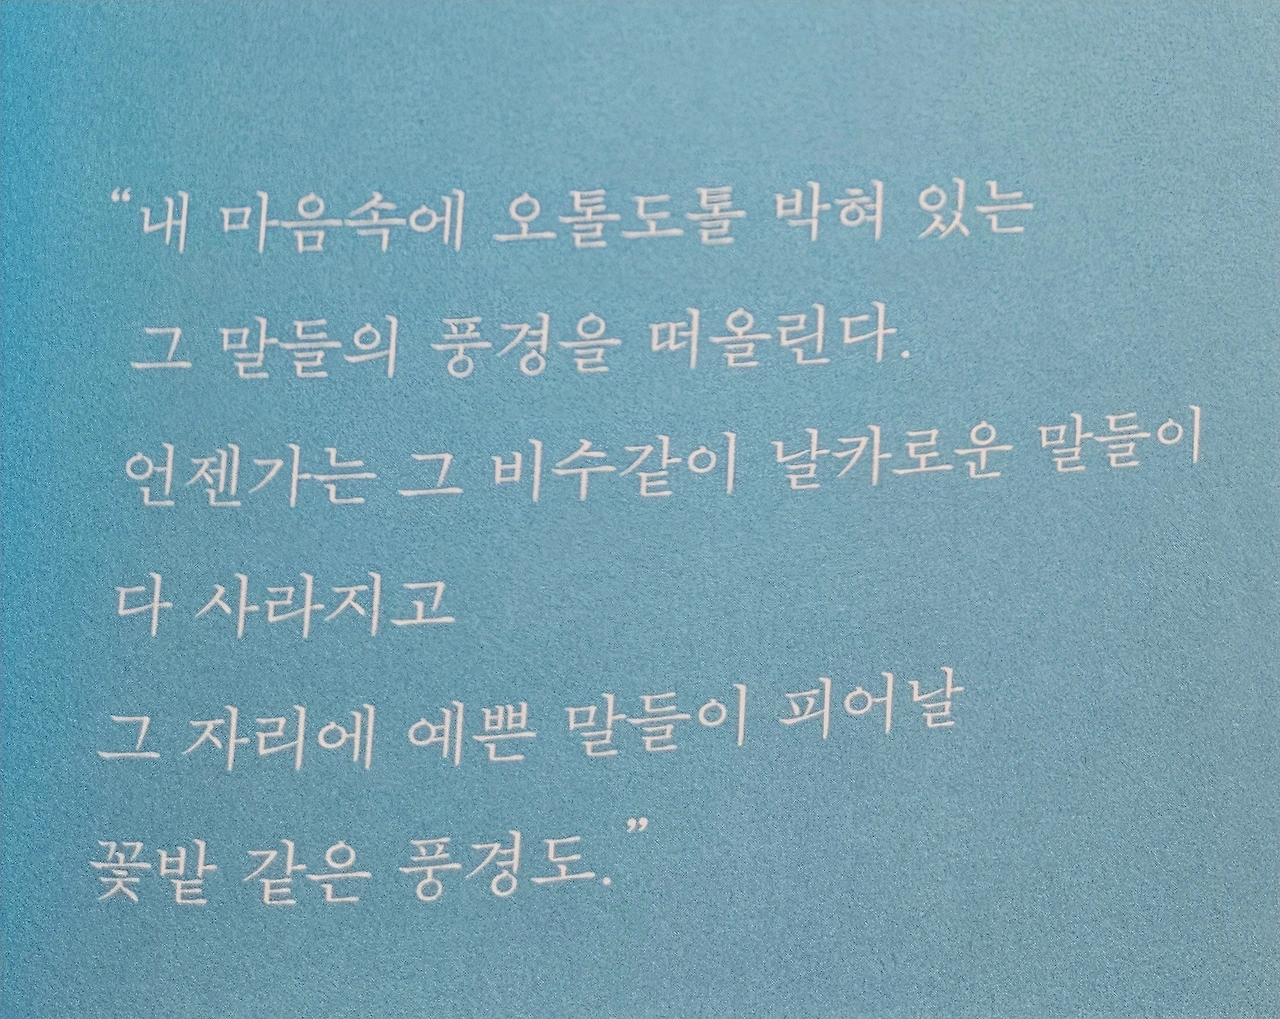 “내 마음속에 오톨도톨 박혀 있는
그 말들의 풍경을 떠올린다.
언젠가는 그 비수같이 날카로운 말들이
다 사라지고
그 자리에 예쁜 말들이 피어날
꽃밭 같은 풍경도.”